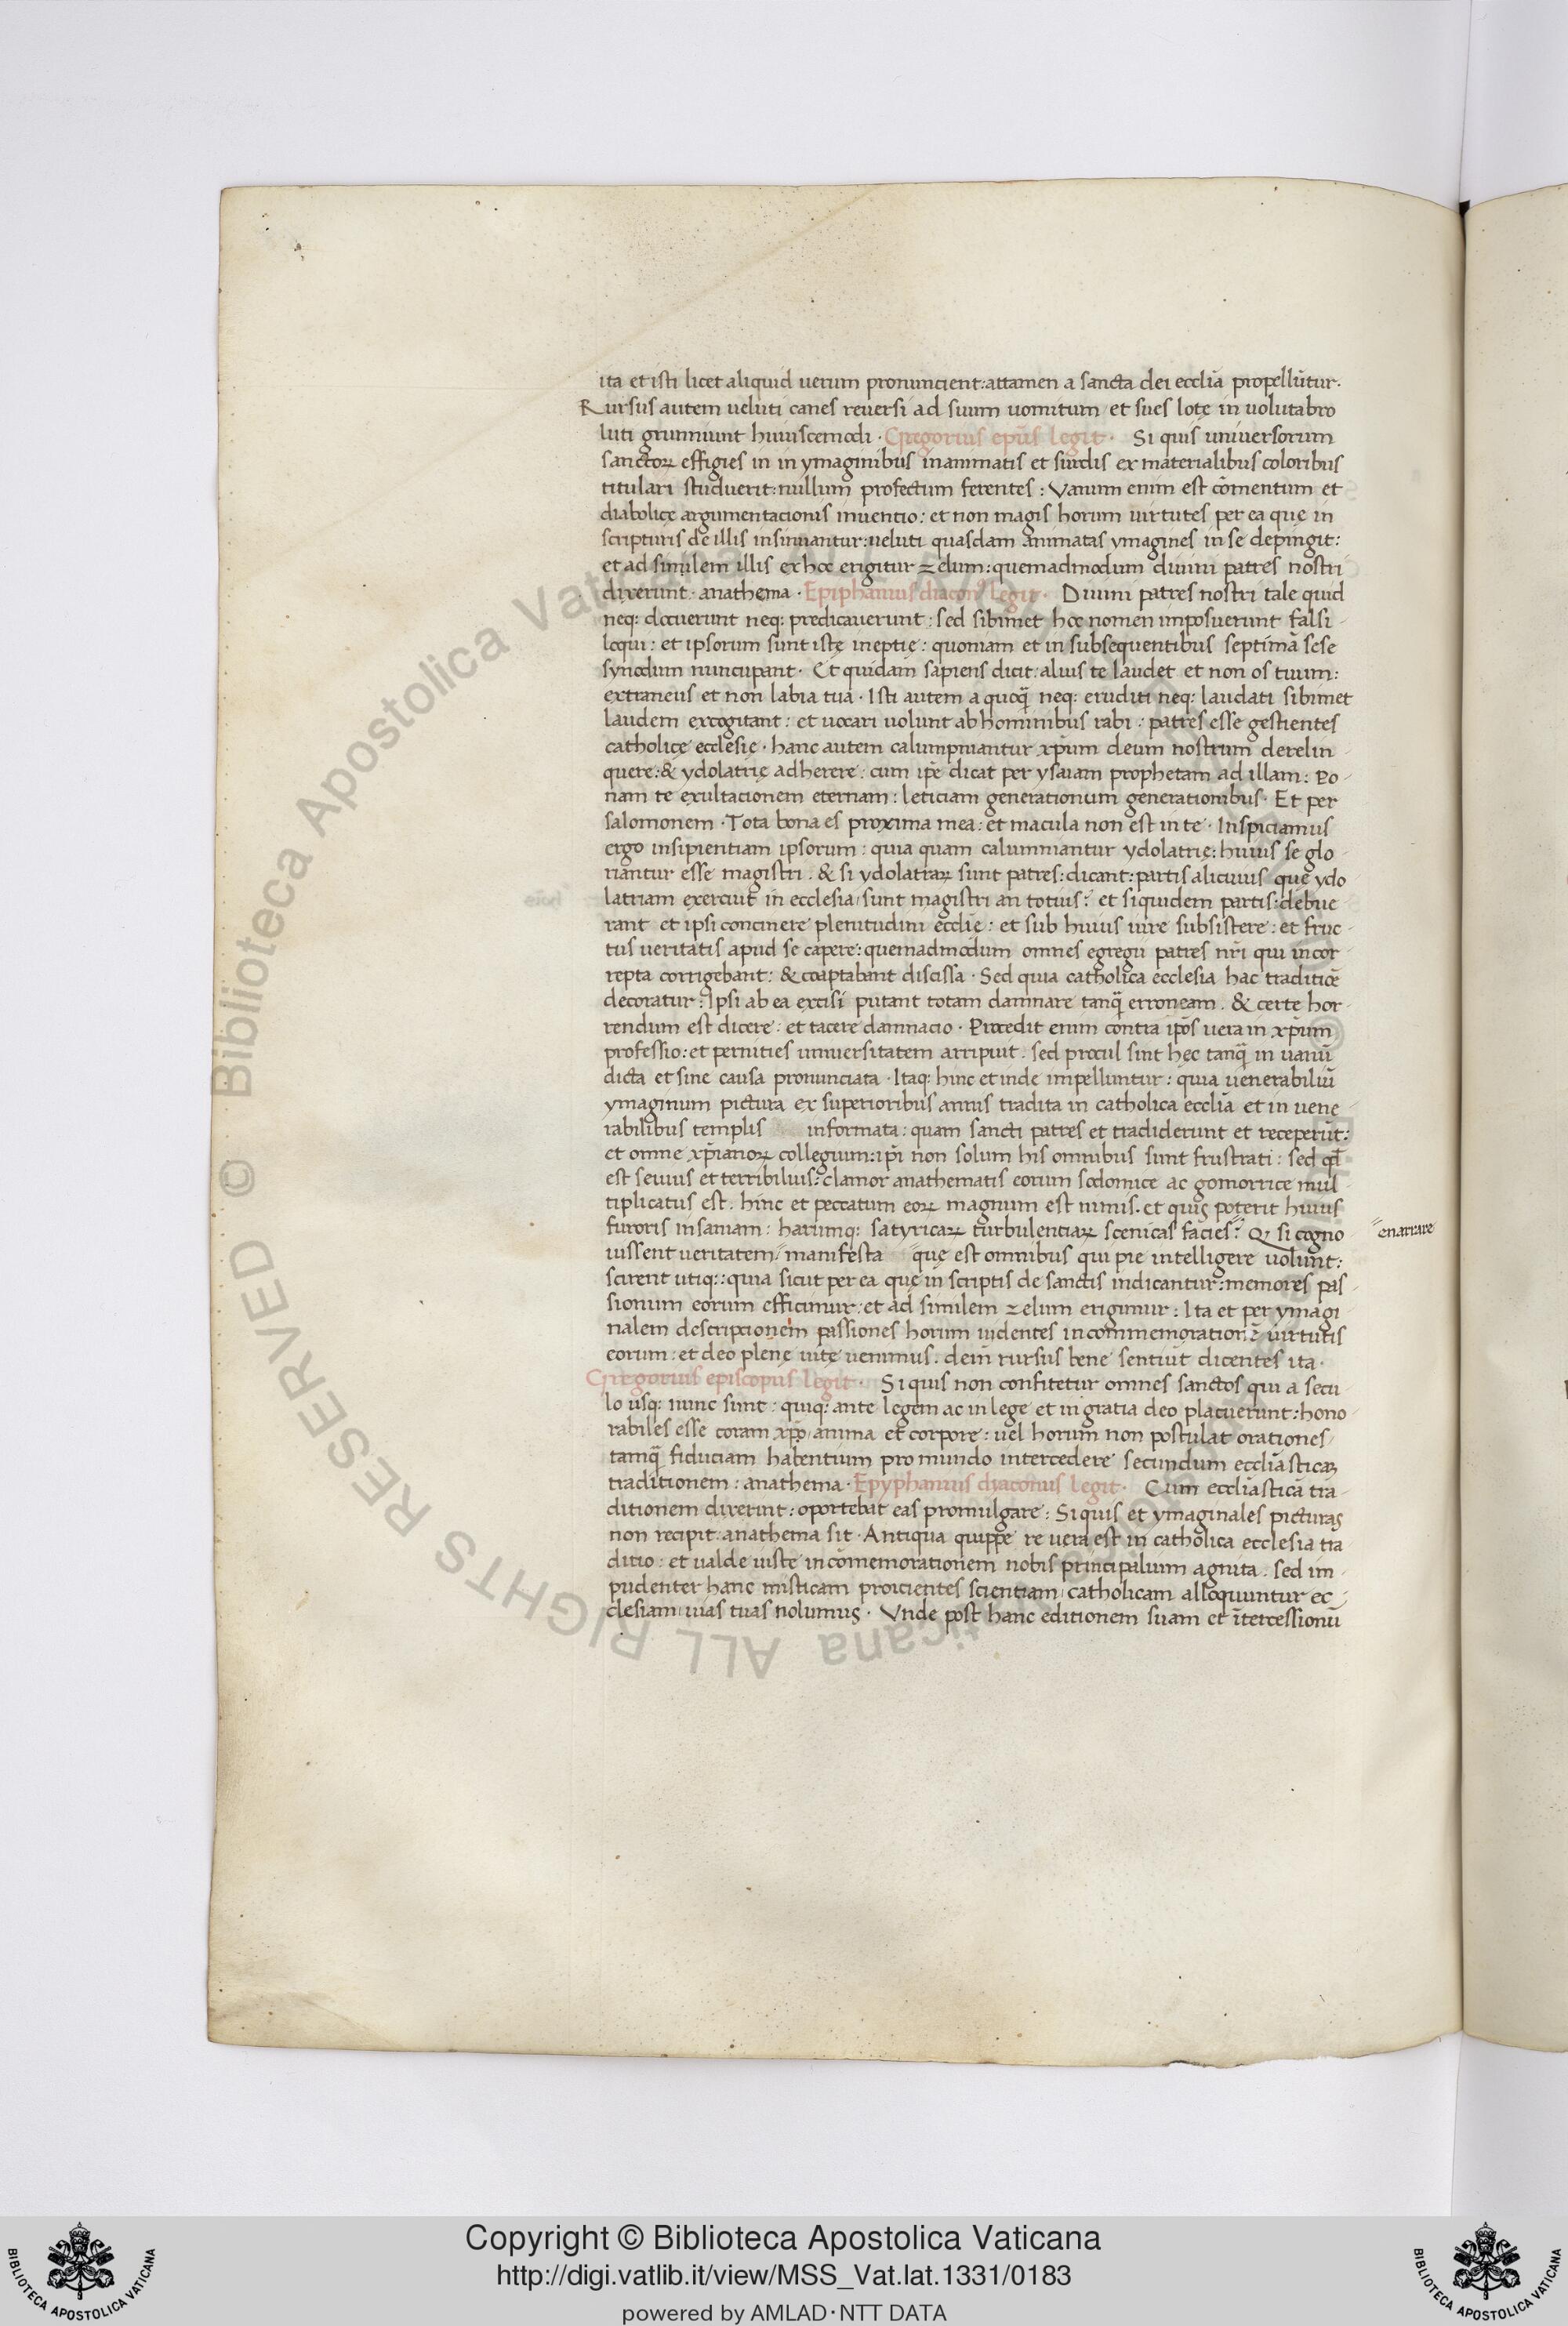 ita et isti licet aliquid uerum pronuncient: attamen a sancta dei ecclīa propellūtur.
Rursus autem ueluti canes reuersi ad suum uomitum et sues lotę in uolutabro
luti grunniunt huiuscemodi. Gregorius ep̄us legit. Si quis uniuersorum
sanctoꝝ effigies in in ymaginibus inanimatis et surdis ex materialibus coloribus
titulari studuerit: nullum profectum ferentes: Vanum enim est cōmentum et
diabolicę argumentacionis inuentio: et non magis horum uirtutes per ea que in
scripturis de illis insinuantur: ueluti quasdam animatas ymagines in se depingit:
et ad similem illis ex hoc erigitur zelum: quemadmodum diuini patres nostri
dixerunt. anathema. Epiphanius diaconꝰ legit. Diuini patres nostri tale quid
neq: docuerunt neq: predicauerunt: sed sibimet hoc nomen imposuerunt falsi
loqui: et ipsorum sunt istę ineptię: quoniam et in subsequentibus septimā sese
synodum nuncupant. Et quidam sapiens dicit: alius te laudet et non os tuum:
extraneus et non labia tua. Isti autem a quoq̄ neq: eruditi neq: laudati sibimet
laudem excogitant: et uocari uolunt ab hominibus rabi: patres esse gestientes
catholicę ecclesię. hanc autem calumpniantur xp̄um deum nostrum derelin
quere: & ydolatrię adherere: cum ip̄e dicat per ysaiam prophetam ad illam: Po-
nam te exultacionem eternam: leticiam generationum generationibus. Et per
salomonem. Tota bona es proxima mea: et macula non est in te. Inspiciamus
ergo insipientiam ipsorum: quia quam calumniantur ydolatrię: huius se glo-
riantur esse magistri. & si ydolatraꝝ sunt patres: dicant: partis alicuius quę ydo
latriam exercuit in ecclesia sunt magistri an totius? et siquidem partis: debue
rant et ipsi concinere plenitudini eccl̄ie: et sub huius iure subsistere: et fruc-
tus ueritatis apud se capere: quemadmodum omnes egregii patres nr̄i qui incor
repta corrigebant: & coaptabant discissa. Sed quia catholica ecclesia hac traditiōe
decoratur: Ipsi ab ea excisi putant totam damnare tanq̄ erroneam. & certe hor-
rendum est dicere: et tacere damnacio. Procedit enim contra ip̄os uera in xp̄um
professio: et pernities uniuersitatem arripuit. sed procul sint hęc tanq̄ in uanū
dicta et sine causa pronunciata. Itaq: hinc et inde impelluntur: quia uenerabiliū
ymaginum pictura ex superioribus annis tradita in catholica ecclīa et in uene-
rabilibus templis informata: quam sancti patres et tradiderunt et receperūt:
et omne xp̄ianoꝝ collegium: ip̄i non solum his omnibus sunt frustrati: sed qd̄
est seuius et terribilius: clamor anathematis eorum sodomice ac gomorrice mul-
tiplicatus est. hinc et peccatum eoꝝ magnum est nimis. et quis poterit huius
furoris insaniam: harumq: satyricaꝝ turbulentiaꝝ scenicas facies? Q, si cogno
enarrare
uissent ueritatem manifesta quę est omnibus qui pie intelligere uolunt:
scirent utiq:: quia sicut per ea que in scriptis de sanctis indicantur: memores pas
sionum eorum efficimur: et ad similem zelum erigimur: Ita et per ymagi
nalem descripcionem passiones horum uidentes in commemorationē uirtutis
eorum: et deo plenę uitę uenimus. dein̄ rursus bene sentiūt dicentes ita.
Gregorius episcopus legit. Si quis non confitetur omnes sanctos qui a secu
lo usq: nunc sunt: quiq: ante legem ac in lege et in gratia deo placuerunt: hono-
rabiles esse coram xp̄o anima et corpore: uel horum non postulat orationes
tamq̄ fiduciam habentium pro mundo intercedere secundum ecclīasticaꝫ
traditionem: anathema. Epyphanius diaconus legit. Cum ecclīasticā tra-
ditionem dixerint: oportebat eas promulgare: Si quis et ymaginales picturas
non recipit: anathema sit. Antiqua quippe re uera est in catholica ecclesia tra
ditio: et ualde iuste in cōmemorationem nobis principalium agnita. sed im-
pudenter hanc misticam proicientes scientiam catholicam alloquuntur ec-
clesiam uias tuas nolumus. Vnde post hanc editionem suam et ītercessionū
© Biblioteca Apostolica Vaticana ALL RIGHTS RESERVED
Copyright © Biblioteca Apostolica Vaticana
http://digi.vatlib.it/view/MSS_Vat.lat.1331/0183
powered by AMLAD·NTT DATA
BIBLIOTECA APOSTOLICA VATICANA
BIBLIOTECA APOSTOLICA VATICANA